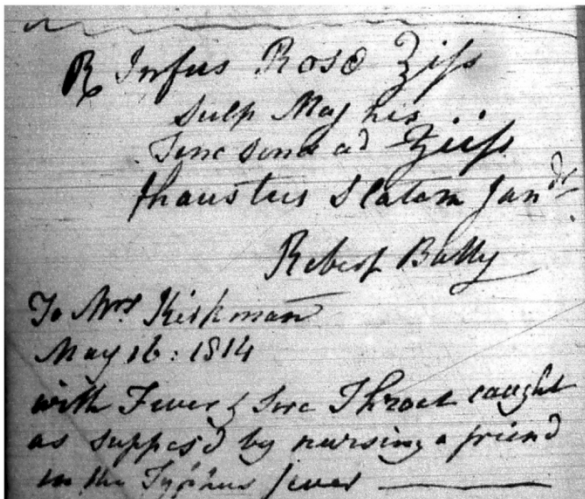 ℞ Infus Rosæ ℥iſs
Sulp Mag
Tinc ad ʒiiſs
haustus Statim
Robert Batty
To Mrs Kirkman
May 16: 1814
with Fever & Sore Throat caught
as suppos'd by nursing a friend
in the Typhus fever